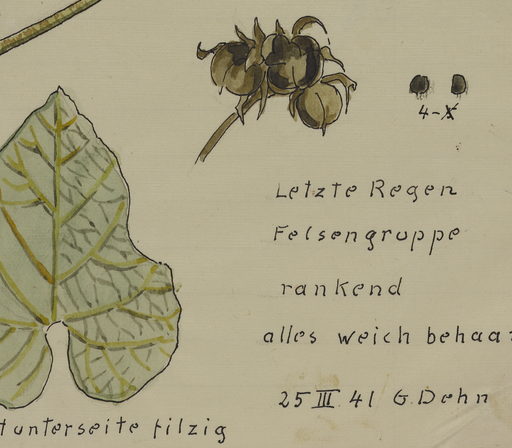 4-X
Letzte Regen
Felsengruppe
rankend
alles weich behaa
25 III 41 G. Dehn
tunterseite filzig